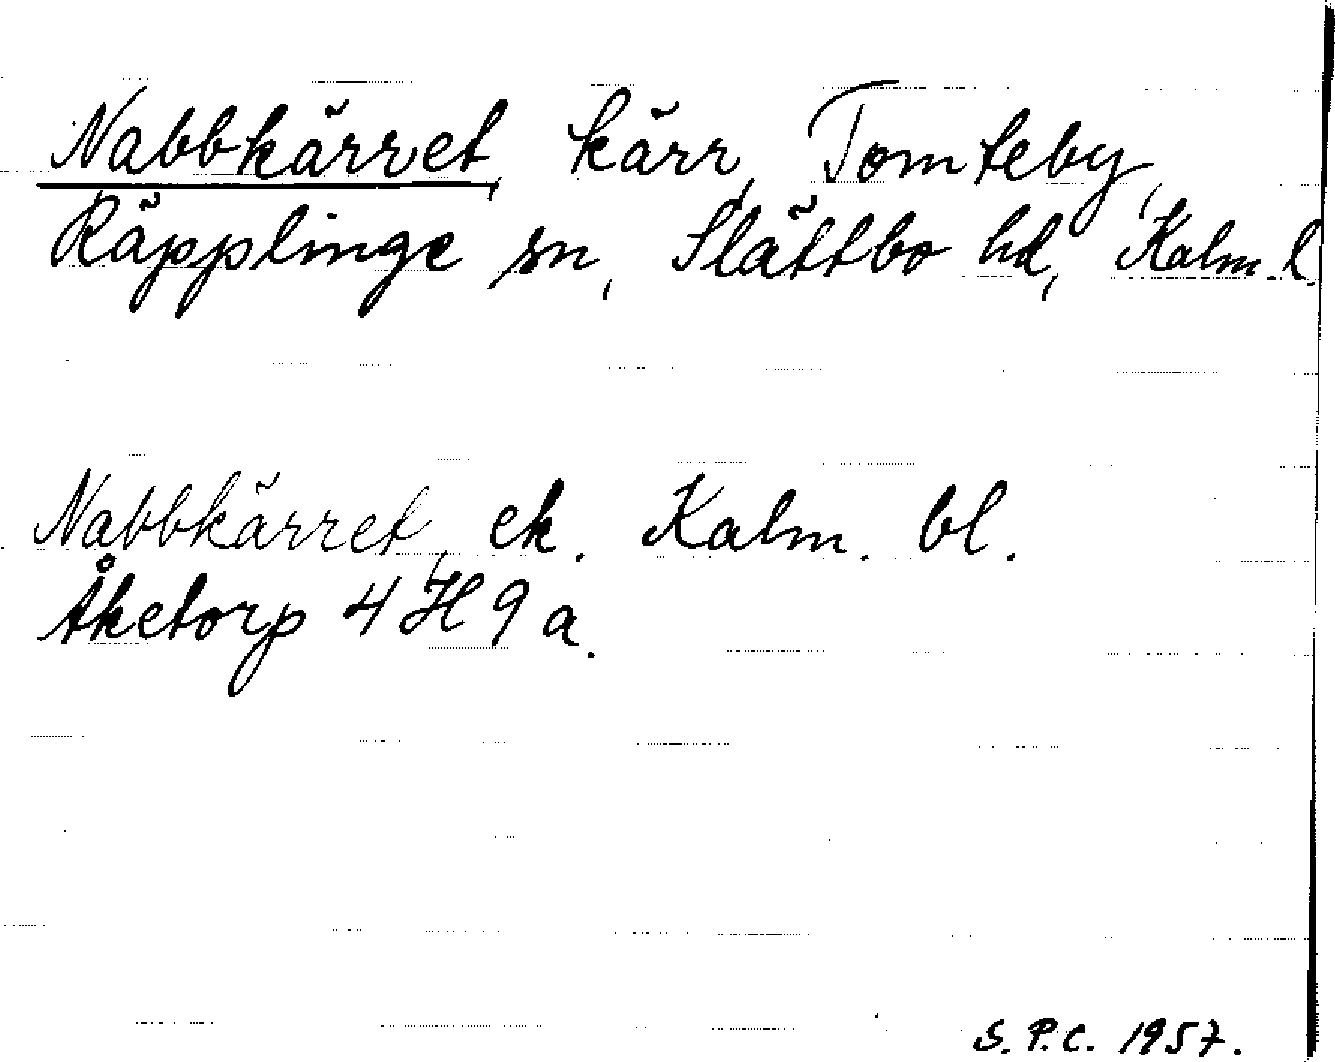 Nabbkärret, kärr, Tomteby,
Räpplinge sn, Slättbo hd, Kalm. l.
Nabbkärret, ek. Kalm. bl.
Åketorp 4 H 9 a.
S. P. C. 1957.